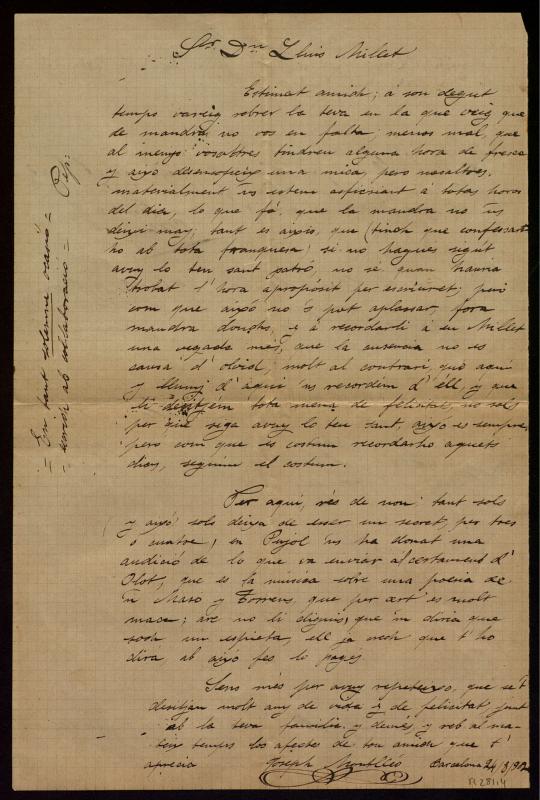 Sr Dn Lluis Millet
Estimat amich; á son degut
temps vareig rebrer la teva en la que veig que
de mandra no vos en falta; menos mal, que
al menys vosaltres tindreu alguna hora de fresca
y axó desensopeix una mica, pero nosaltres,
materialment 'ns estem asficsiant á totas horas
del dia, lo que fá, que la mandra no 'ns
deixi may; tant es aixís, que (tinch que confessar
ho ab tota franquesa) si no hagués sigut
avuy lo teu sant patró, no sé quan hauria
trobat l' hora aproposit per escriuret; peró
com que aixó no 's pot aplassar, fora
mandra donchs, y á recordarli á en Millet
una vegada més, que la ausencia no es
causa d' olvid, molt al contrari, que aquí
y lluny d' aquí 'ns recordém d' éll, y que
li desitjém tota mena de felicitat, no sols
per que siga avuy lo teu sant, aixó es sempre,
pero com que es costum recordarho aquets
dias, seguim el costum.
Per aquí, rés de nou: tant sols
y aixó sols deixa de esser un secret, per tres
o cuatre; en Pujol 'ns ha donat una
audició de lo que va enviar al certament d'
Olot, que es la música sobre una poesia de
'n Maso y Torrens, que per cert es molt
maca; are no li diguis, que 'm diria que
soch un espieta, ell ja crech que t' ho
dirá ab aixó fes lo pagés
Sens més per avuy repeteixo, que se 't
desitjan molt any de vida y de felicitat junt
ab la teva familia y demés, y reb al ma-
teix temps los afectes de ton amich que t'
aprecia Joseph Barcelona 24/8/90
R 281.4
= En tant solemne ocasió =
- ab col·laboració = Pep: